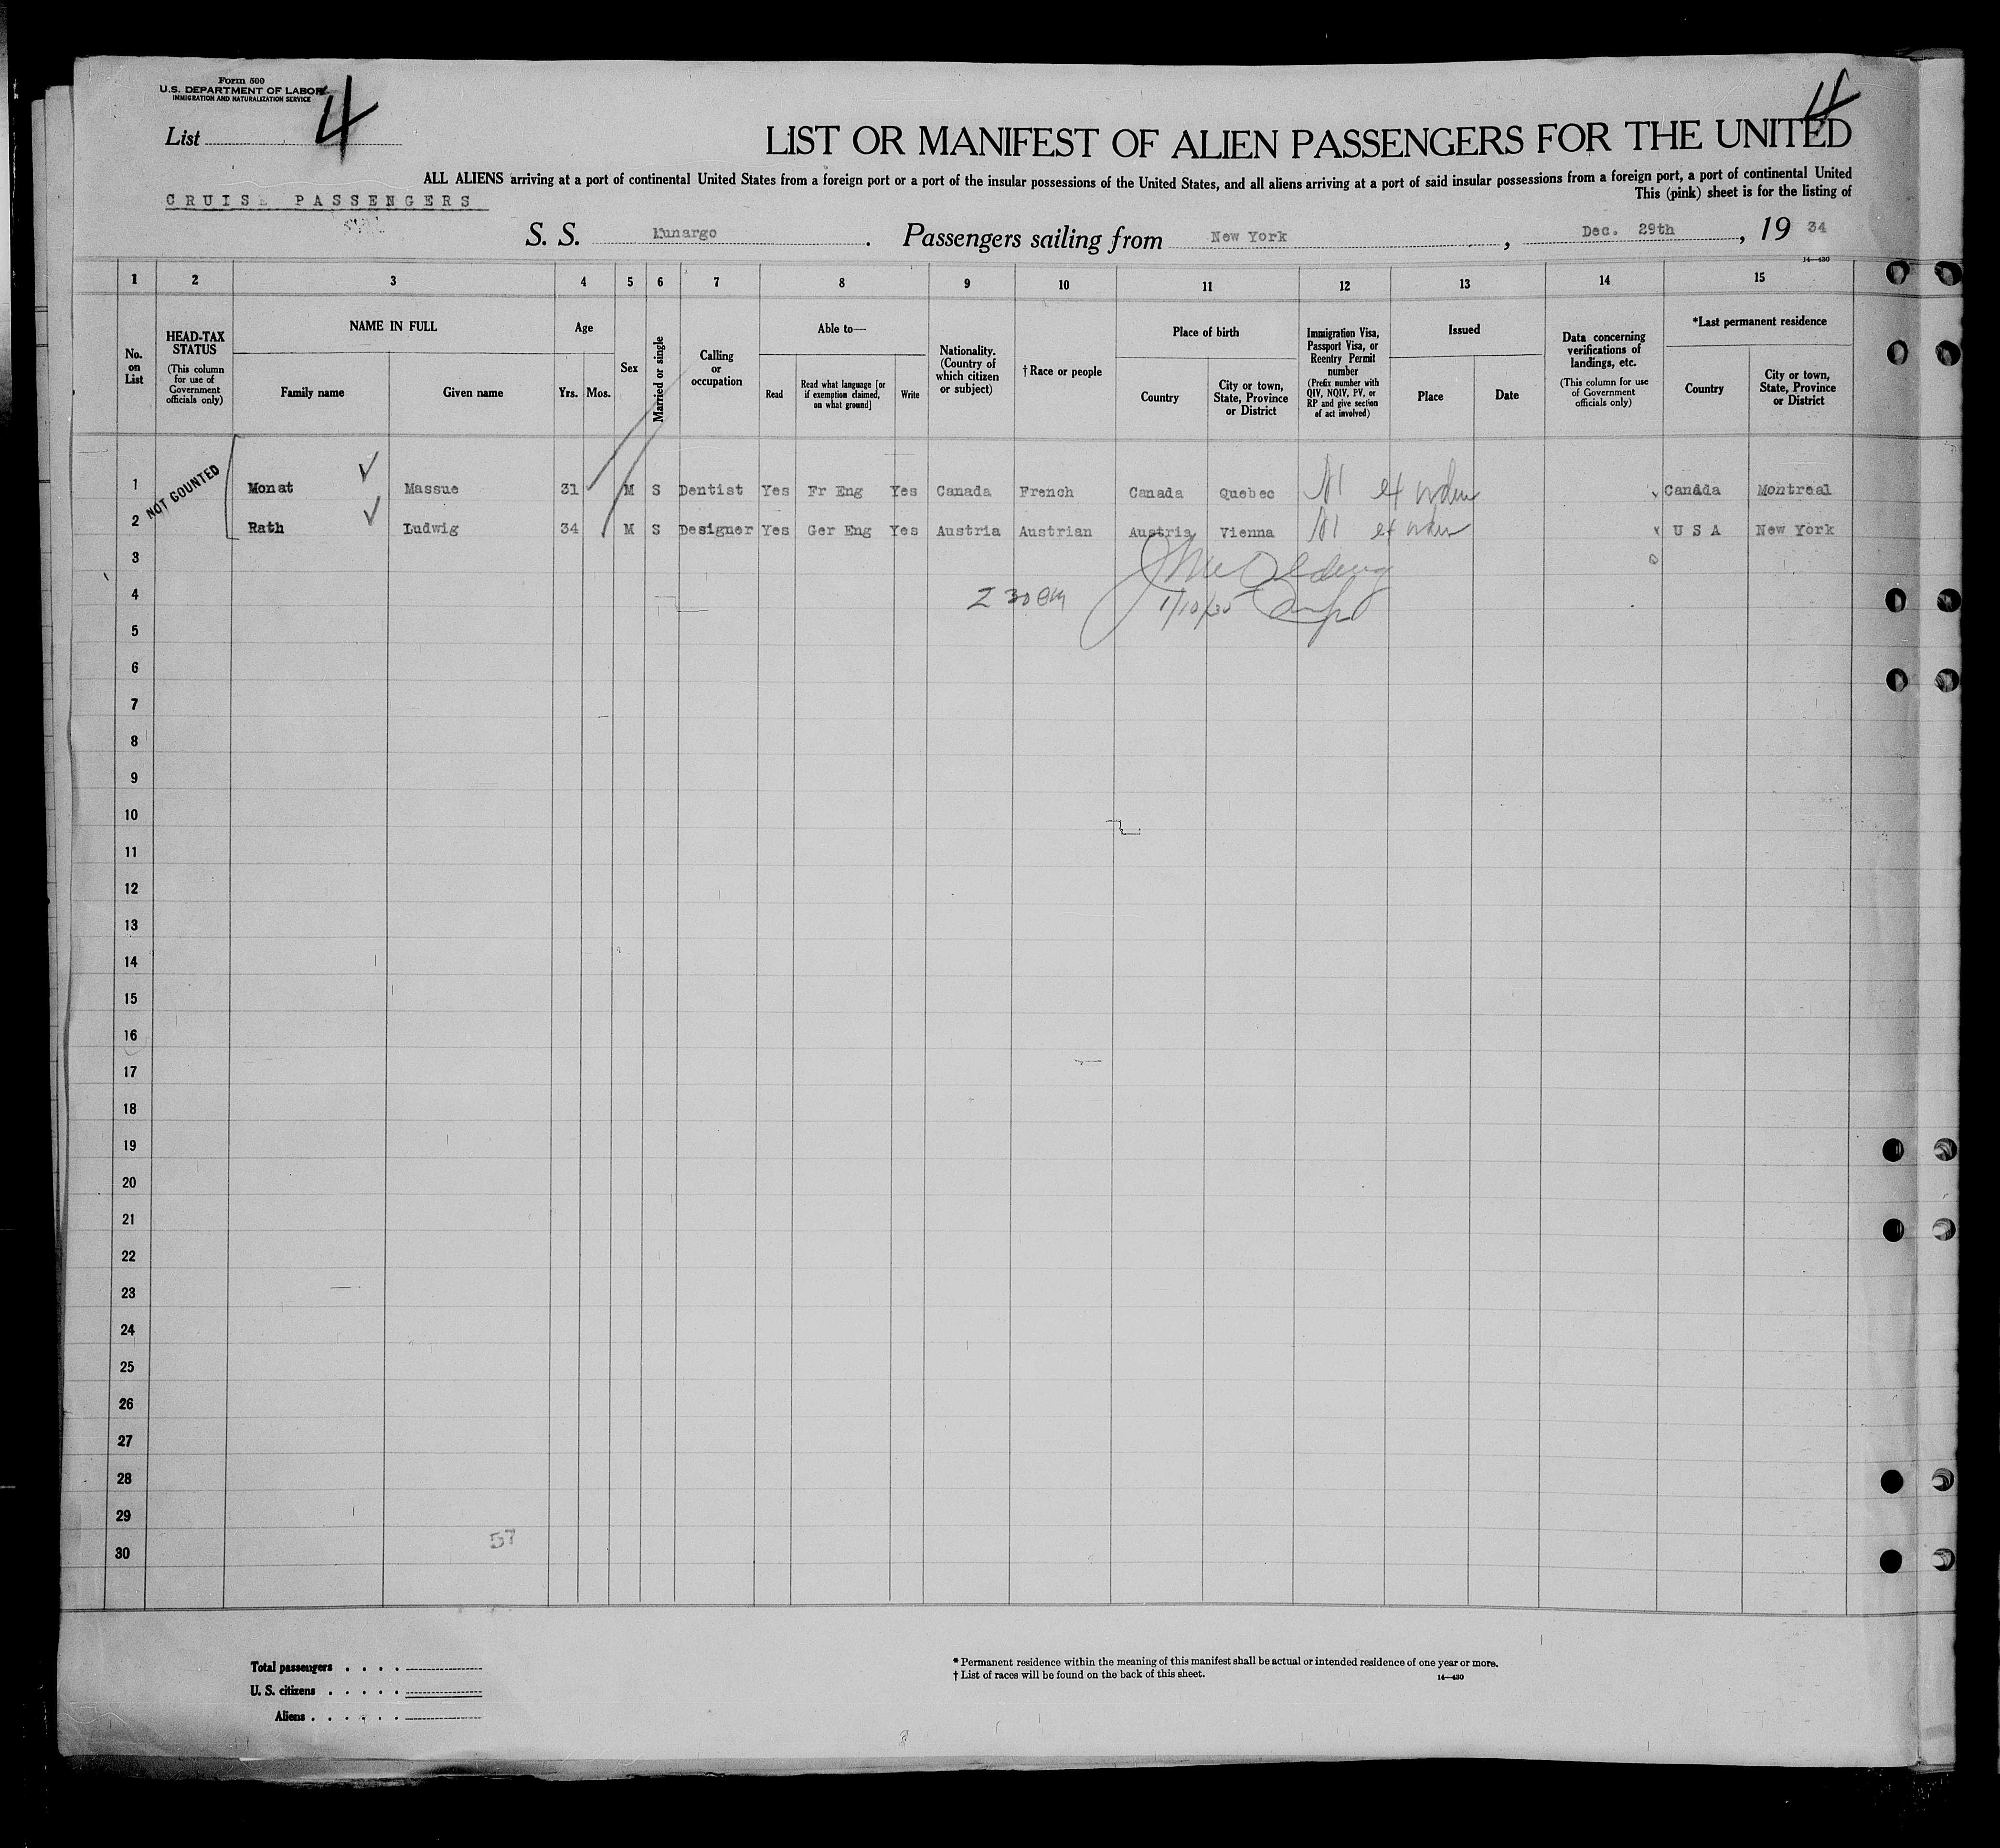 Form 500
U.S. DEPARTMENT OF LABOR
IMMIGRATION AND NATURALIZATION SERVICE
List 4
4
LIST OR MANIFEST OF ALIEN PASSENGERS FOR THE UNITED
ALL ALIENS arriving at a port of continental United States from a foreign port or a port of the insular possessions of the United States, and all aliens arriving at a port of said insular possessions from a foreign port, a port of continental United
This (pink) sheet is for the listing of
CRUISE PASSENGERS
S. S. Munargo. Passengers sailing from New York, Dec. 29th, 19 34
14—430
1 2 3 4 5 6 7 8 9 10 11 12 13 14 15
No. on List
HEAD-TAX STATUS
(This column for use of Government officials only)
NAME IN FULL
Family name Given name
Age
Yrs. Mos.
Sex
Married or single
Calling or occupation
Able to—
Read
Read what language [or if exemption claimed, on what ground]
Write
Nationality. (Country of which citizen or subject)
†Race or people
Place of birth
Country
City or town, State, Province or District
Immigration Visa, Passport Visa, or Reentry Permit number
(Prefix number with QIV, NQIV, PV, or RP and give section of act involved)
Issued
Place Date
Data concerning verifications of landings, etc.
(This column for use of Government officials only)
*Last permanent residence
Country
City or town, State, Province or District
NOT COUNTED
1 Monat Massue 31 M S Dentist Yes Fr Eng Yes Canada French Canada Quebec Canada Montreal
2 Rath Ludwig 34 M S Designer Yes Ger Eng Yes Austria Austrian Austria Vienna U S A New York
3
4
1/10/35
5
6
7
8
9
10
11
12
13
14
15
16
17
18
19
20
21
22
23
24
25
26
27
28
29
57
30
Total passengers . . . .
U. S. citizens . . . . .
Aliens . . . . . .
* Permanent residence within the meaning of this manifest shall be actual or intended residence of one year or more.
† List of races will be found on the back of this sheet.
14—430